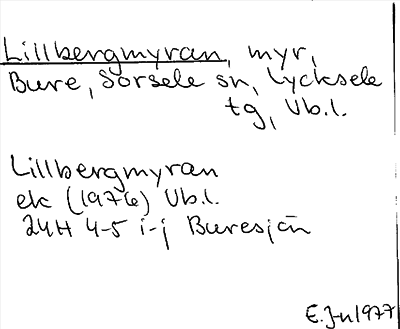 Lillbergmyran, myr,
Bure, Sorsele sn, Lycksele
tg, Vb.l.
Lillbergmyran
ek (1976) Vb.l.
24H 4-5 i-j Buresjön
E.Jn 1977